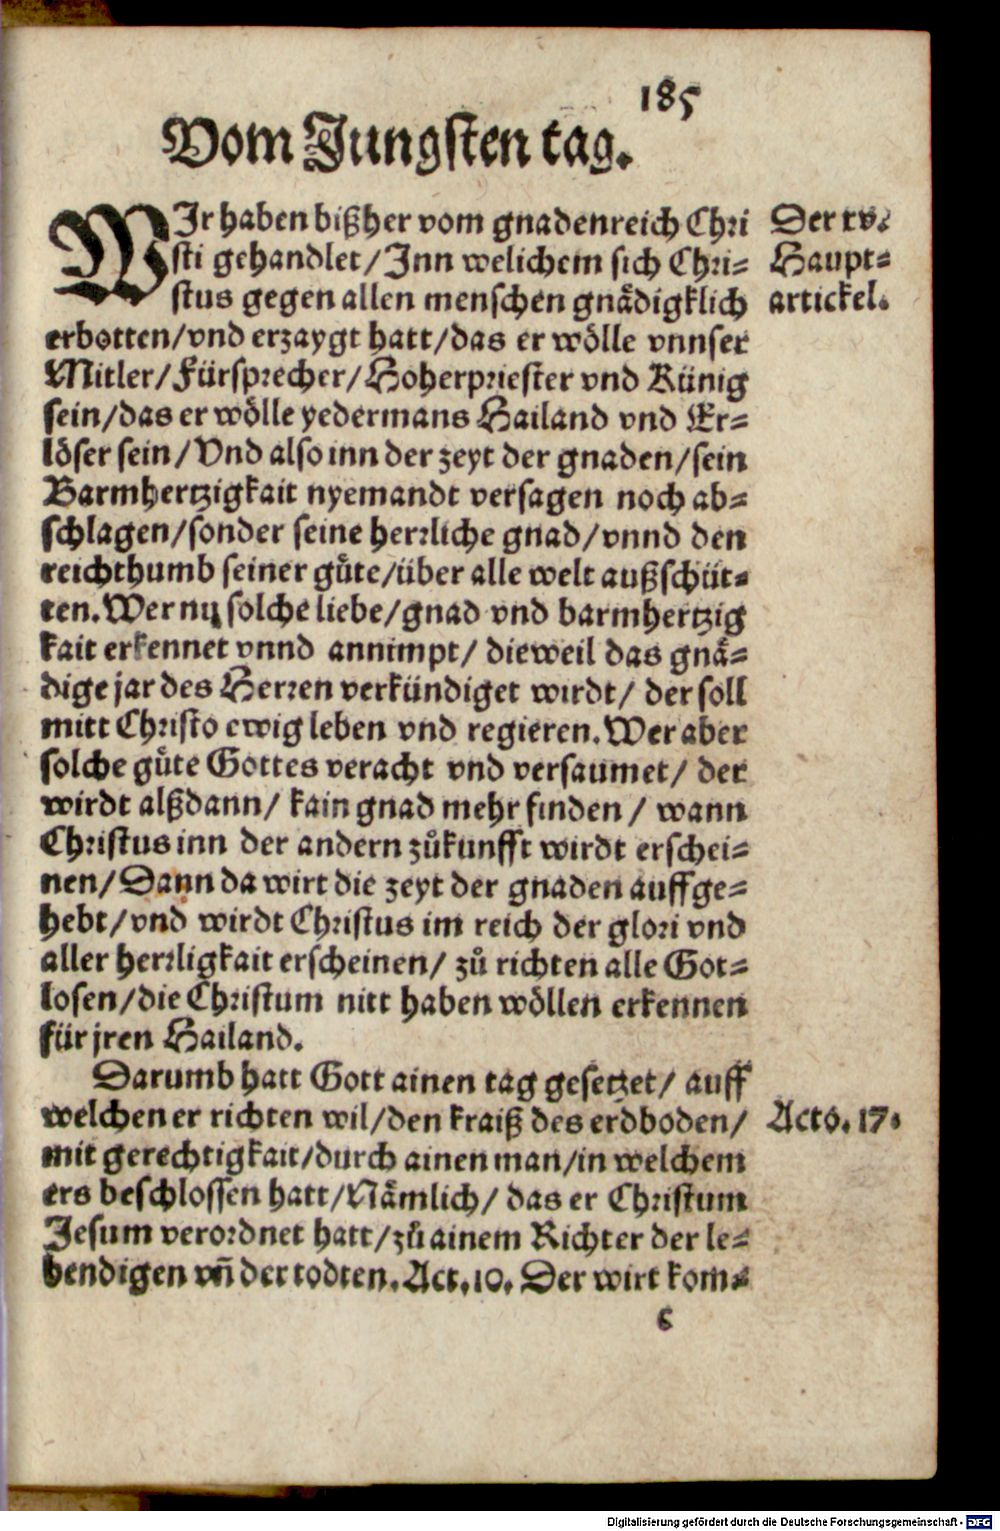 185
Vom Jungsten tag.
WJr haben bißher vom gnadenreich Chri
sti gehandlet/Jnn welichem sich Chri-
stus gegen allen menschen gnädigklich
erbotten/vnd erzaygt hatt/das er wölle vnnser
Mitler/Fürsprecher/Hoherpriester vnd Künig
sein/das er wölle yedermans Hailand vnd Er-
löser sein/Vnd also inn der zeyt der gnaden/sein
Barmhertzigkait nyemandt versagen noch ab-
schlagen/sonder seine herrliche gnad/vnnd den
reichthumb seiner gůte/über alle welt außschüt-
ten. Wer nu solche liebe/gnad vnd barmhertzig
kait erkennet vnnd annimpt/ dieweil das gnä-
dige jar des Herren verkündiget wirdt/ der soll
mitt Christo ewig leben vnd regieren. Wer aber
solche gůte Gottes veracht vnd versaumet/ der
wirdt alßdann/ kain gnad mehr finden / wann
Christus inn der andern zůkunfft wirdt erschei-
nen/Dann da wirt die zeyt der gnaden auffge-
hebt/vnd wirdt Christus im reich der glori vnd
aller herrligkait erscheinen/ zů richten alle Got-
losen/die Christum nitt haben wöllen erkennen
für jren Hailand.
Darumb hatt Gott ainen tag gesetzet/ auff
welchen er richten wil/den kraiß des erdboden/
mit gerechtigkait/durch ainen man/in welchem
ers beschlossen hatt/Nämlich/ das er Christum
Jesum verordnet hatt/zů ainem Richter der le-
bendigen vñ der todten. Act. 10. Der wirt kom-
c
Der xv.
Haupt-
artickel.
Acto. 17.
Digitalisierung gefördert durch die Deutsche Forschungsgemeinschaft - DFG